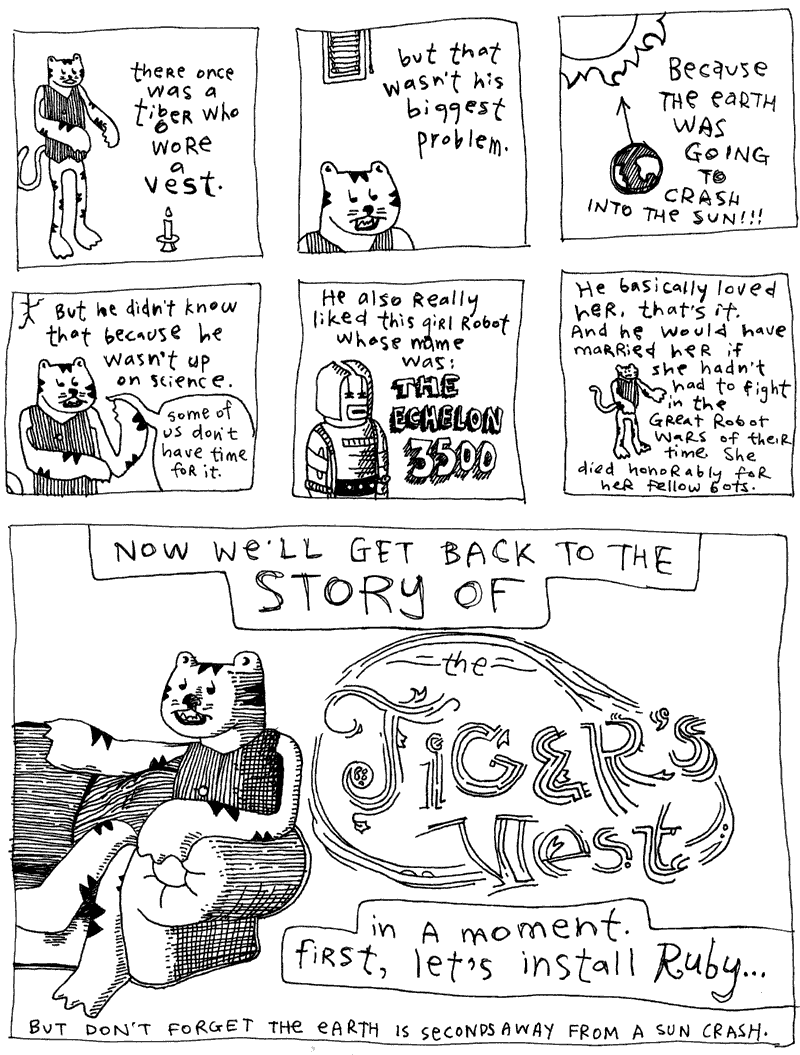 there once
was a
tiger who
wore
a
vest.
but that
wasn't his
biggest
problem.
Because
THE EARTH
WAS
GOING
TO
CRASH
INTO THE SUN!!!
But he didn't know
that because he
wasn't up
on science.
some of
us don't
have time
for it.
He also Really
liked this girl Robot
whose name
was:
THE
ECHELON
3500
He basically loved
her, that's it.
And he would have
married her if
she hadn't
had to fight
in the
GREAT Robot
WARS of their
time. She
died honorably for
her fellow bots.
NOW WE'LL GET BACK TO THE
STORY OF
the
TiGER'S
Vest
in A moment.
first, let's install Ruby...
BUT DON'T FORGET THE EARTH IS SECONDS AWAY FROM A SUN CRASH.